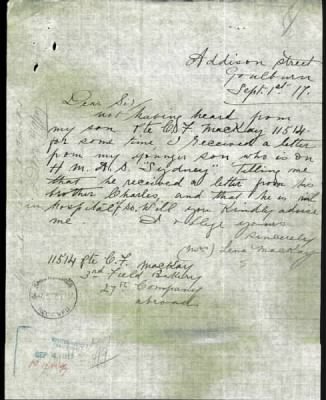 Addison Street
Goulburn
Sept. 1st 17.
Dear Sir,
not having heard from
my son Pte C. F. Mackay 11514
for some time, I received a letter
from my younger son, who is on
H. M. A. S. Sydney, Telling me
that he received a letter from his
brother Charles, and that he is
in hospital, Will you kindly advise
me
yours
sincerely
Lena Mackay
11514 Pte C. F. Mackay
3rd Field Bakery
27th Company
abroad
SEP 4 1917